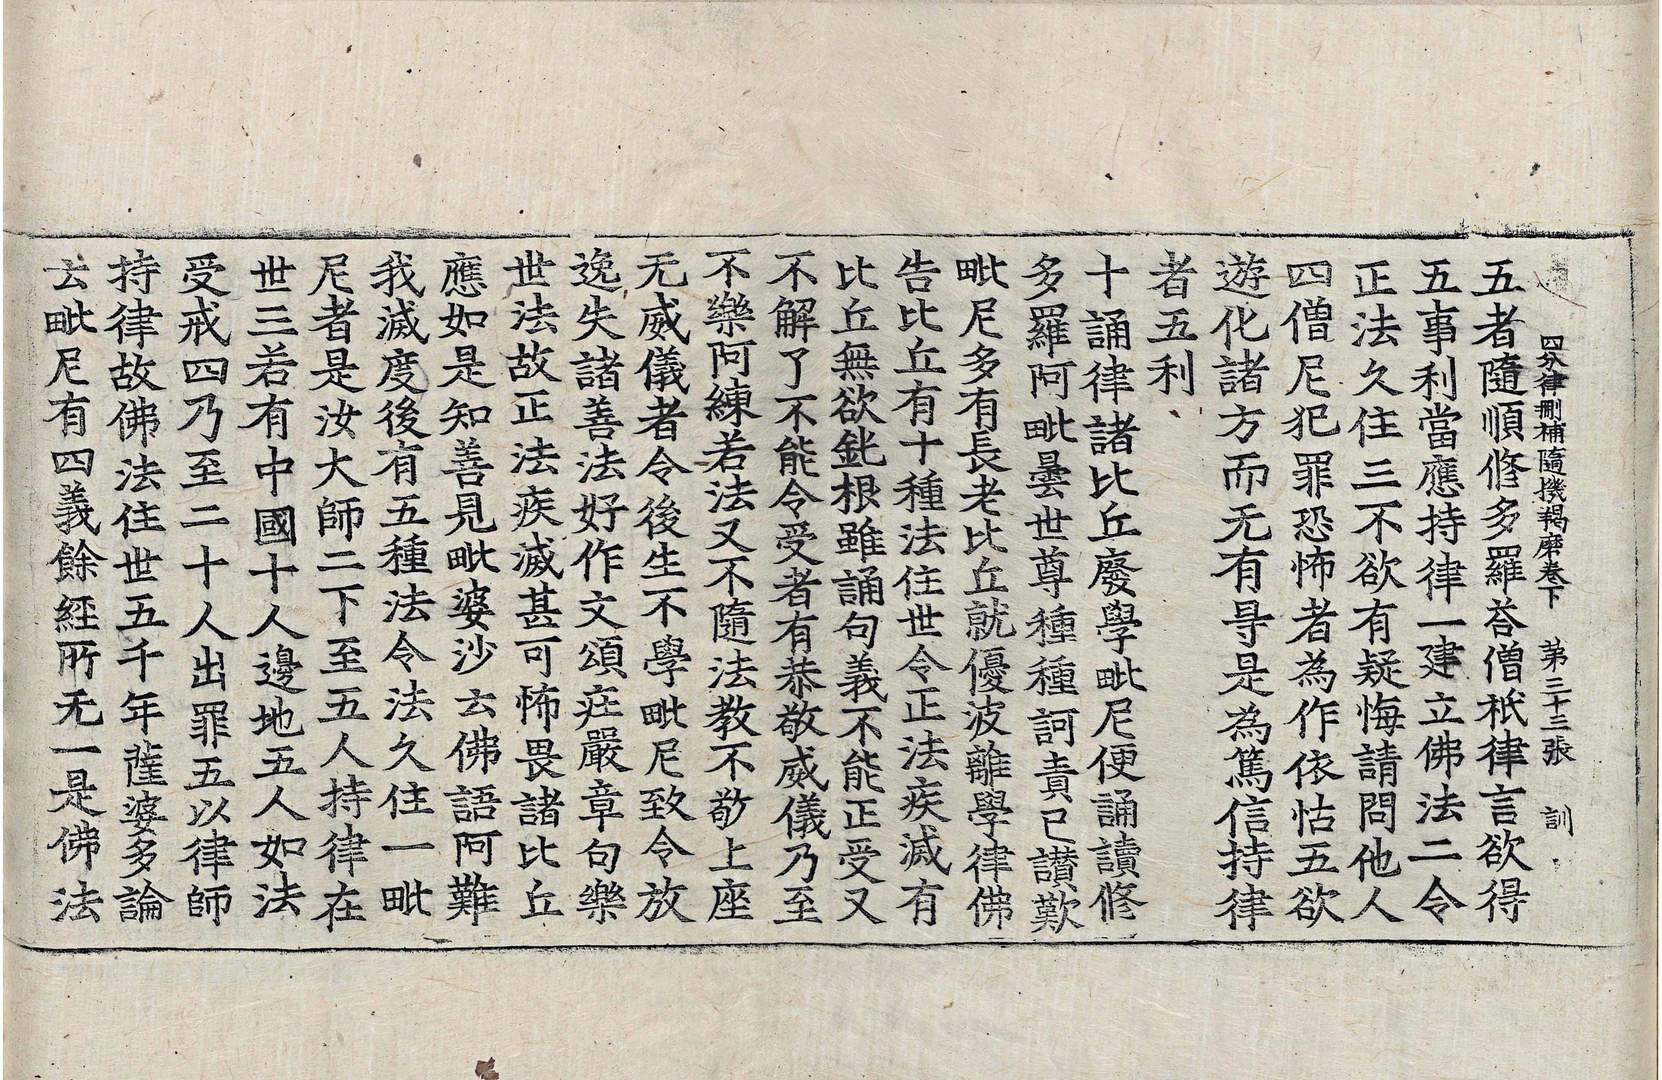 四分律刪補隨機羯磨卷下　第三十三張　訓
五者隨順修多羅荅僧祇律言欲得
五事利當應持律一建立佛法二令
正法久住三不欲有疑悔請問他人
四僧尼犯罪恐怖者為作依怙五欲
遊化諸方而无有㝵是為篤信持律
者五利
十誦律諸比丘廢學毗尼便誦讀修
多羅阿毗曇世尊種種訶責已讃歎
毗尼多有長老比丘就優波離學律佛
告比丘有十種法住世令正法疾滅有
比丘無欲鈍根雖誦句義不能正受又
不解了不能令受者有恭敬威儀乃至
不樂阿練若法又不隨法教不敬上座
无威儀者令後生不學毗尼致令放
逸失諸善法好作文頌庄嚴章句樂
世法故正法疾滅甚可怖畏諸比丘
應如是知善見毗婆沙云佛語阿難
我滅度後有五種法令法久住一毗
尼者是汝大師二下至五人持律在
世三若有中國十人邊地五人如法
受戒四乃至二十人出罪五以律師
持律故佛法住世五千年薩婆多論
云毗尼有四義餘經所无一是佛法